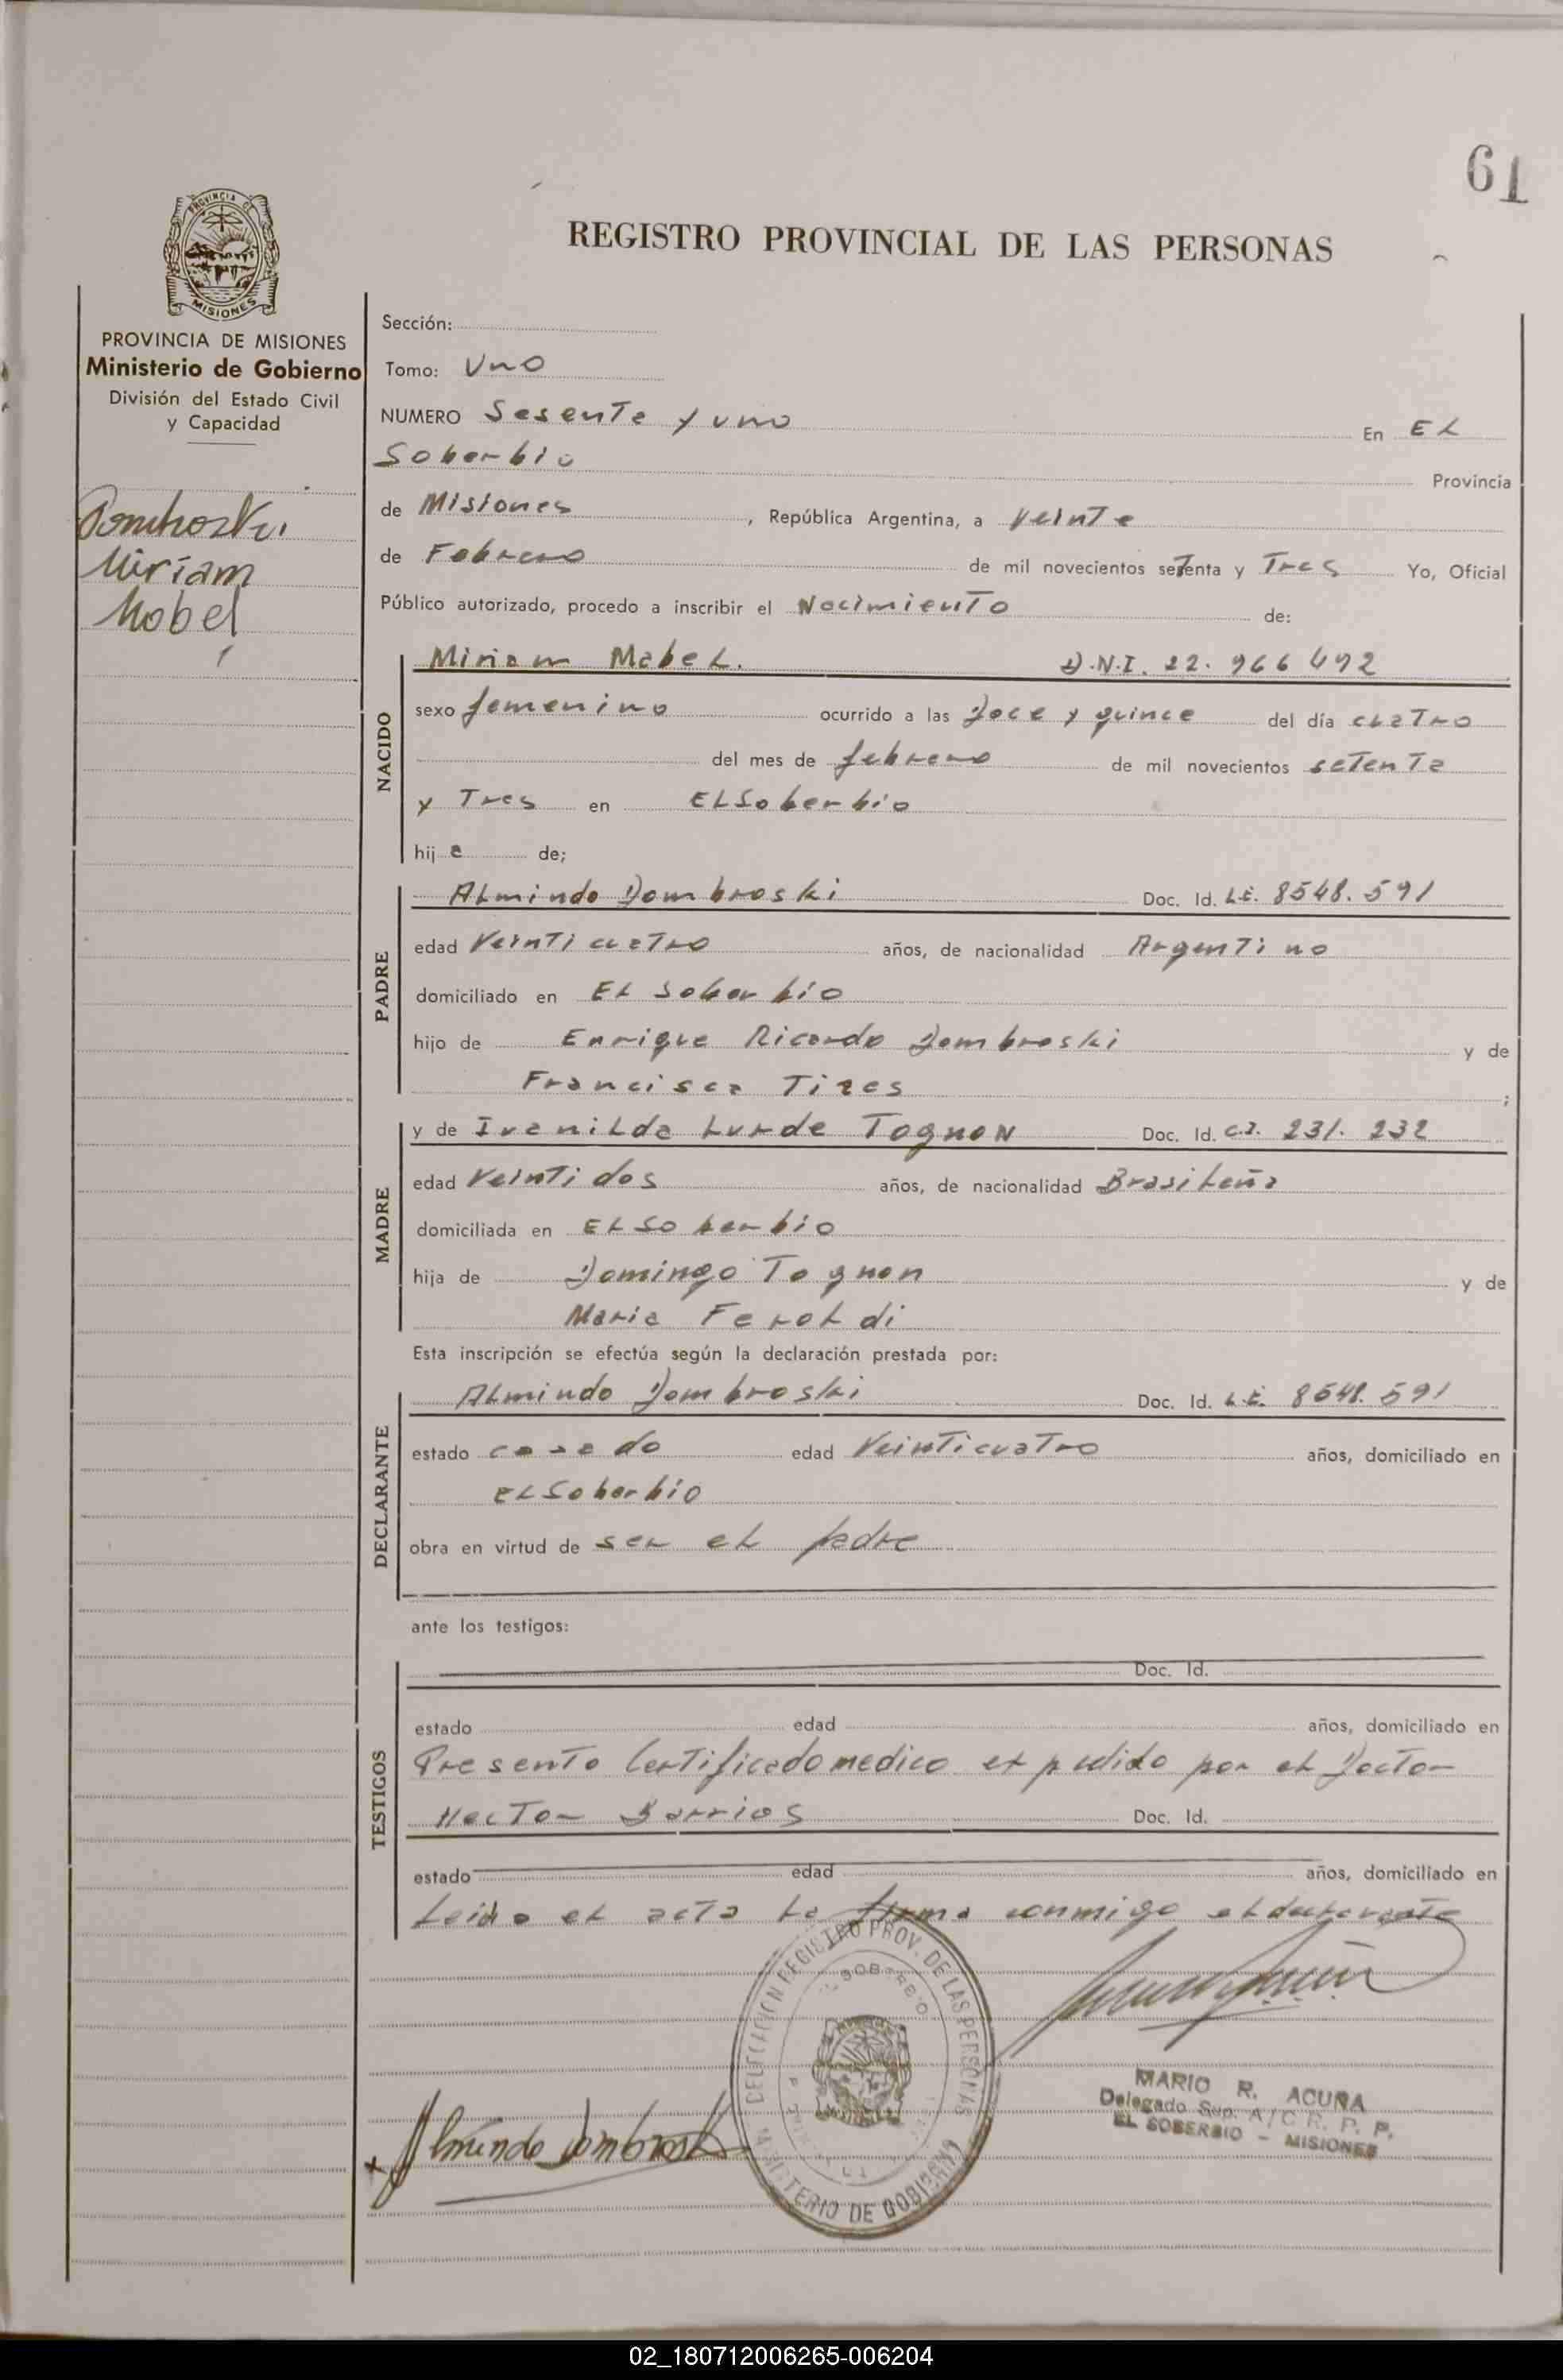 61
PROVINCIA DE
MISIONES
REGISTRO PROVINCIAL DE LAS PERSONAS
PROVINCIA DE MISIONES
Ministerio de Gobierno
División del Estado Civil
y Capacidad
Miriam
Mabel
Sección:
Tomo: Uno
NUMERO Sesenta y uno En EL
Soberbio Provincia
de Misiones, República Argentina, a Veinte
de Febrero de mil novecientos setenta y Tres Yo, Oficial
Público autorizado, procedo a inscribir el Nacimiento de:
NACIDO
Miriam Mabel. D.N.I. 22.966492
sexo femenino ocurrido a las Doce y quince del día cuatro
del mes de febrero de mil novecientos setenta
y Tres en EL Soberbio
hija de;
PADRE
Almindo Dombroski Doc. Id. L.E. 8548.591
edad Veinticuatro años, de nacionalidad Argentino
domiciliado en El Soberbio
hijo de Enrique Ricardo Dombroski y de
Francisca ;
MADRE
y de Ivanilda Lurde Tognon Doc. Id. C.I. 231.232
edad Veintidos años, de nacionalidad Brasileña
domiciliada en El Soberbio
hija de Domingo Tognon y de
Maria Feroldi
Esta inscripción se efectúa según la declaración prestada por:
DECLARANTE
Almindo Dombroski Doc. Id. L.E. 8548.591
estado casado edad Veinticuatro años, domiciliado en
El Soberbio
obra en virtud de ser el padre
ante los testigos:
TESTIGOS
Doc. Id.
estado edad años, domiciliado en
Presento Certificado medico expedido por el Doctor
Hector Barrios Doc. Id.
estado edad años, domiciliado en
Leida el acta la firma conmigo el declarante
DELEGACION REGISTRO PROV. DE LAS PERSONAS
SOBERBIO
MINISTERIO DE GOBIERNO
MARIO R. ACUÑA
Delegado Sup. A/C R. P. P.
EL SOBERBIO - MISIONES
Almindo Dombroski
02_180712006265-006204